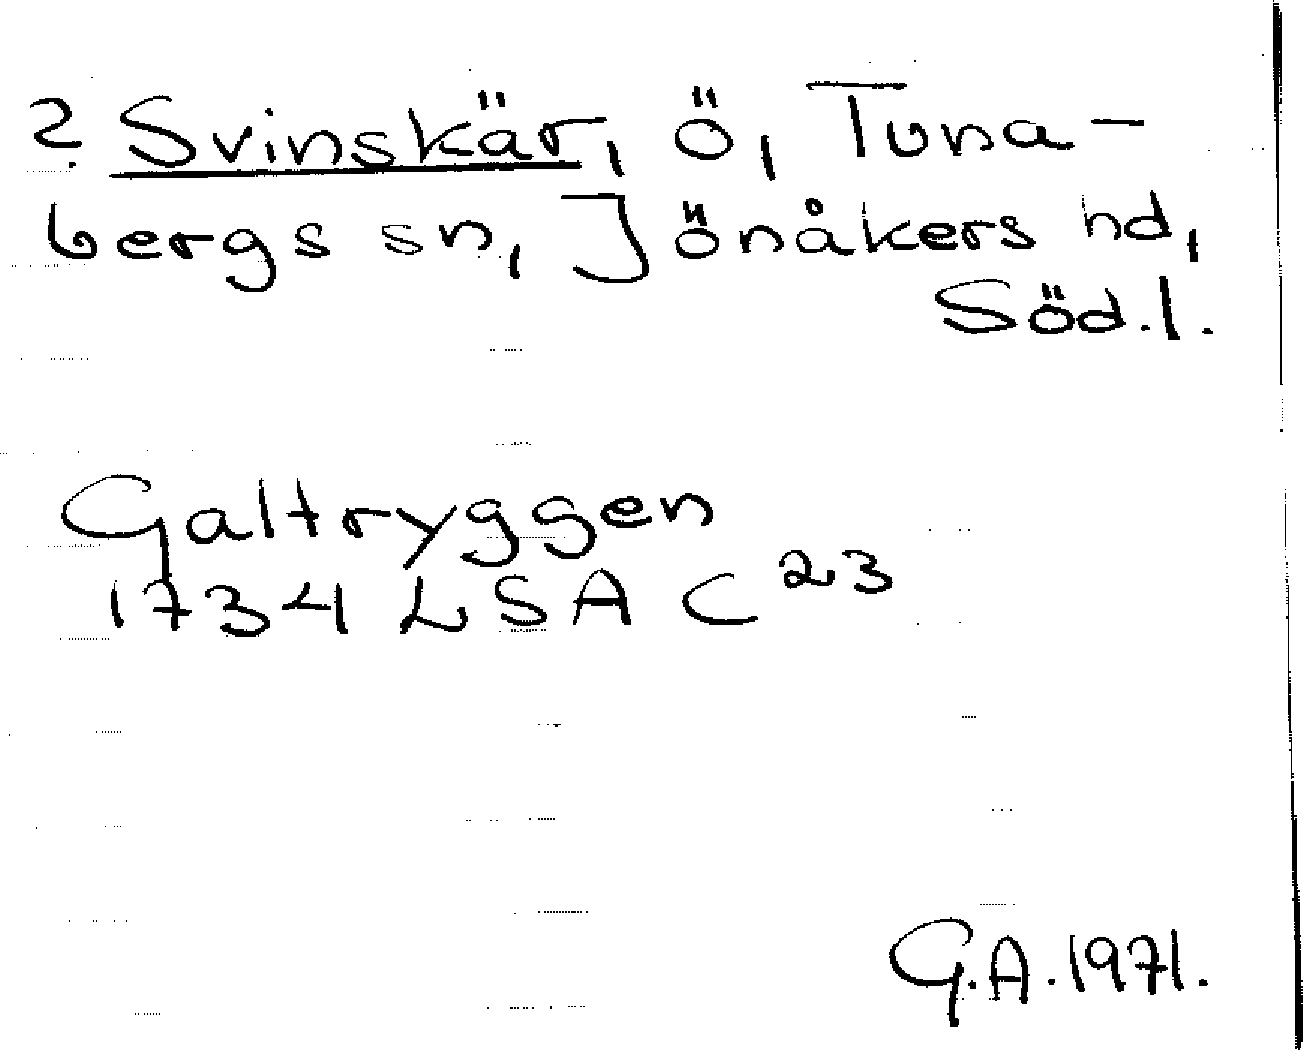 ? Svinskär, ö, Tuna-
bergs sn, Jönåkers hd,
Söd.l.
Galtryggen
1734 LSA C 23
G.A. 1971.